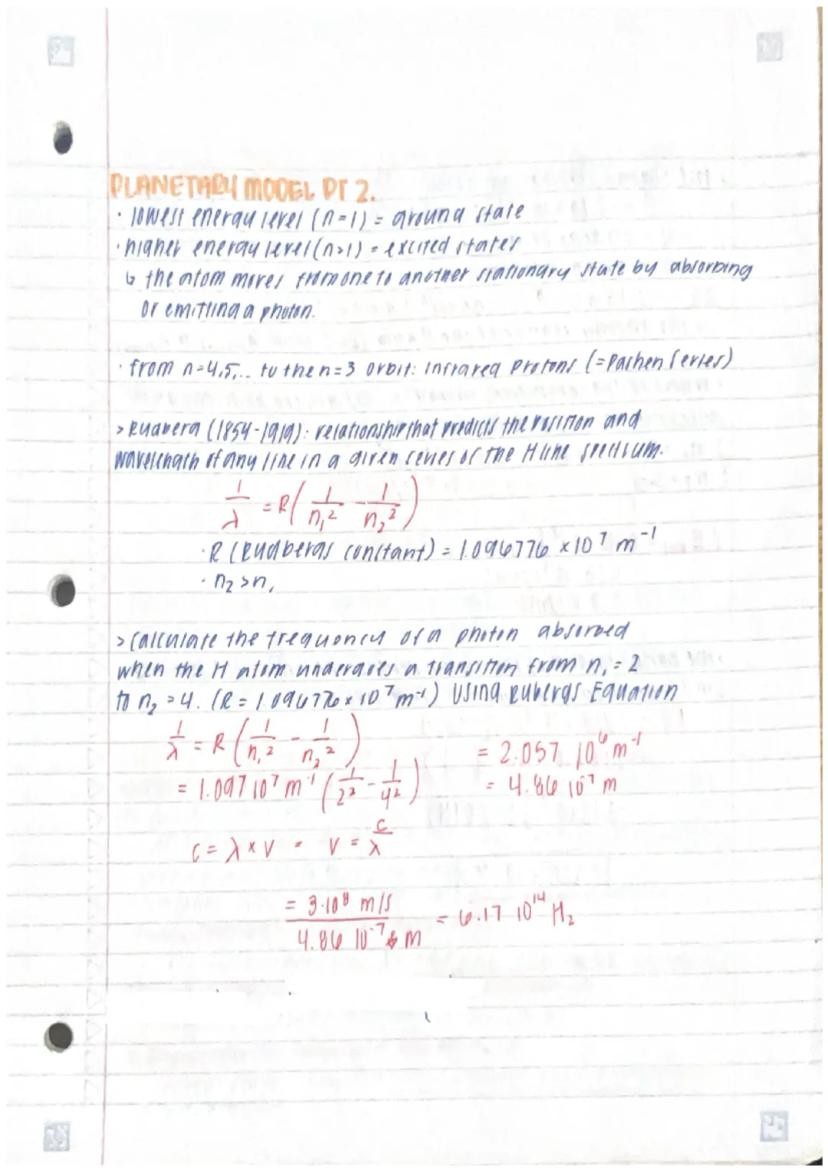 PLANETARY MODEL PT 2.
· lowest energy level (n=1) = ground state
· higher energy level (n>1) = excited states
↳ the atom moves from one to another stationary state by absorbing
or emitting a photon.
· from n=4,5,.. to the n=3 orbit: infrared Protons (=Pashen Series)
> Rydberg (1854-1919): relationship that predicts the position and
wavelength of any line in a given series of the H line spectrum.
1/λ = R(1/n₁² - 1/n₂²)
· R (Rydbergs constant) = 1.096776 × 10⁷ m⁻¹
· n₂ > n₁
> Calculate the frequency of a photon absorbed
when the H atom undergoes a transition from n₁ = 2
to n₂ = 4. (R = 1.096776 × 10⁷ m⁻¹) Using Rybergs Equation
1/λ = R(1/n₁² - 1/n₂²) = 2.057 10⁶ m⁻¹
= 1.097 10⁷ m⁻¹ (1/2² - 1/4²) = 4.86 10⁻⁷ m
c = λ × v = v = c/λ
= 3·10⁸ m/s / 4.86 10⁻⁷ m = 6.17 10¹⁴ Hz